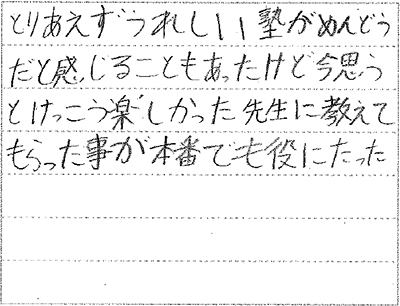 とりあえずうれしい塾がめんどう
だと感じることもあったけど今思う
とけっこう楽しかった先生に教えて
もらった事が本番でも役にたった